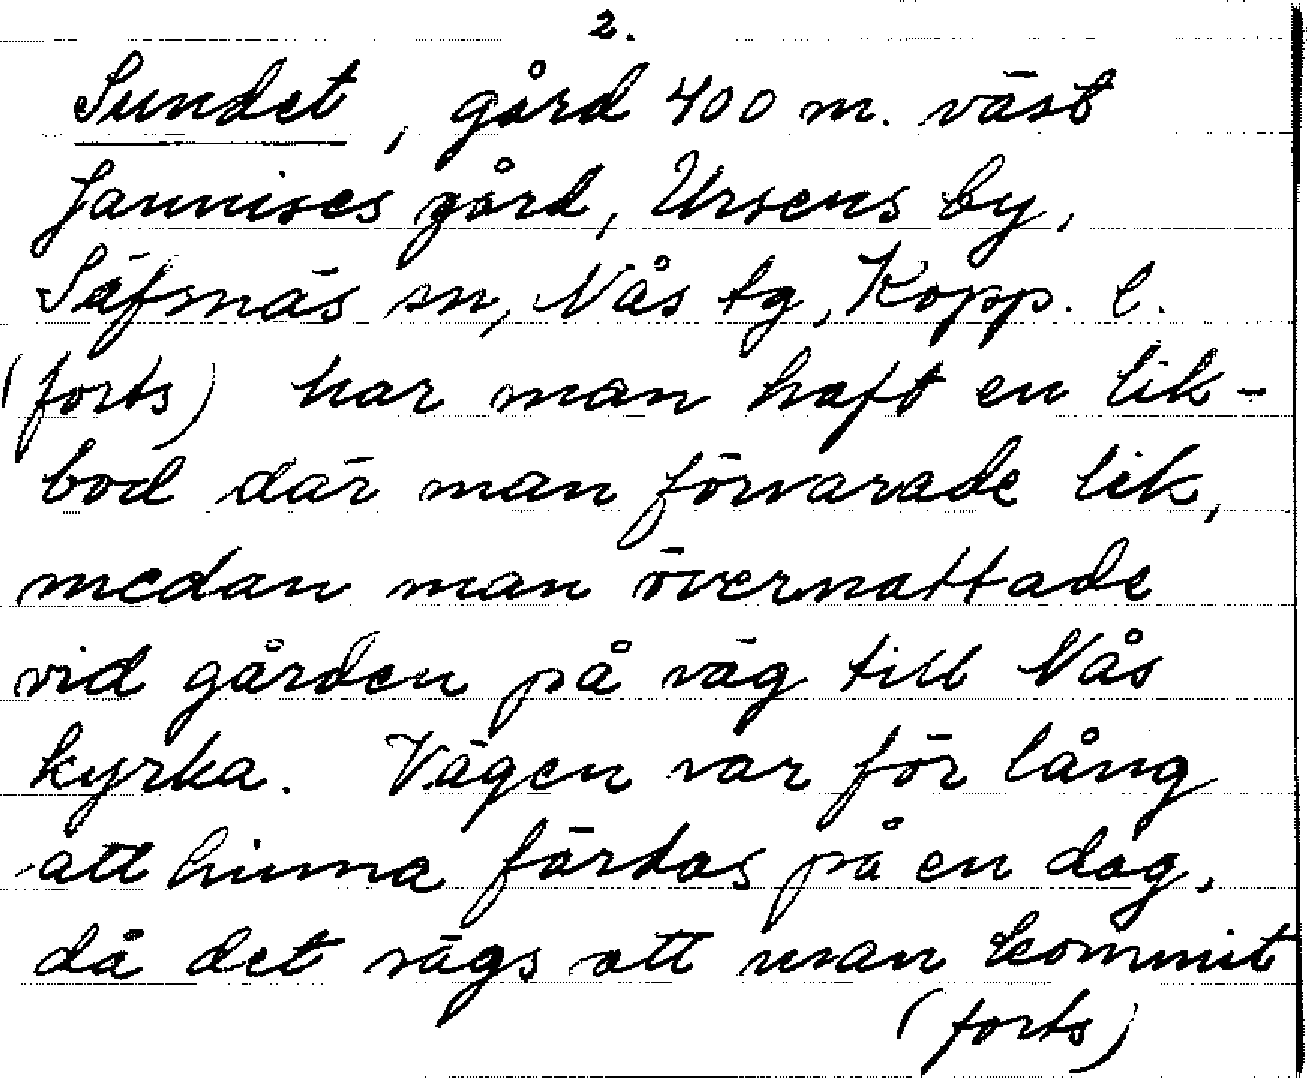 2.
Sundet, gård 400 m. väst
Jannises gård, Ursens by,
Säfsnäs sn, Nås tg, Kopp. l.
(forts) har man haft en lik-
bod där man förvarade lik,
medan man övernattade
vid gården på väg till Nås
kyrka. Vägen var för lång
att hinna färdas på en dag,
då det sägs att man kommit
(forts)